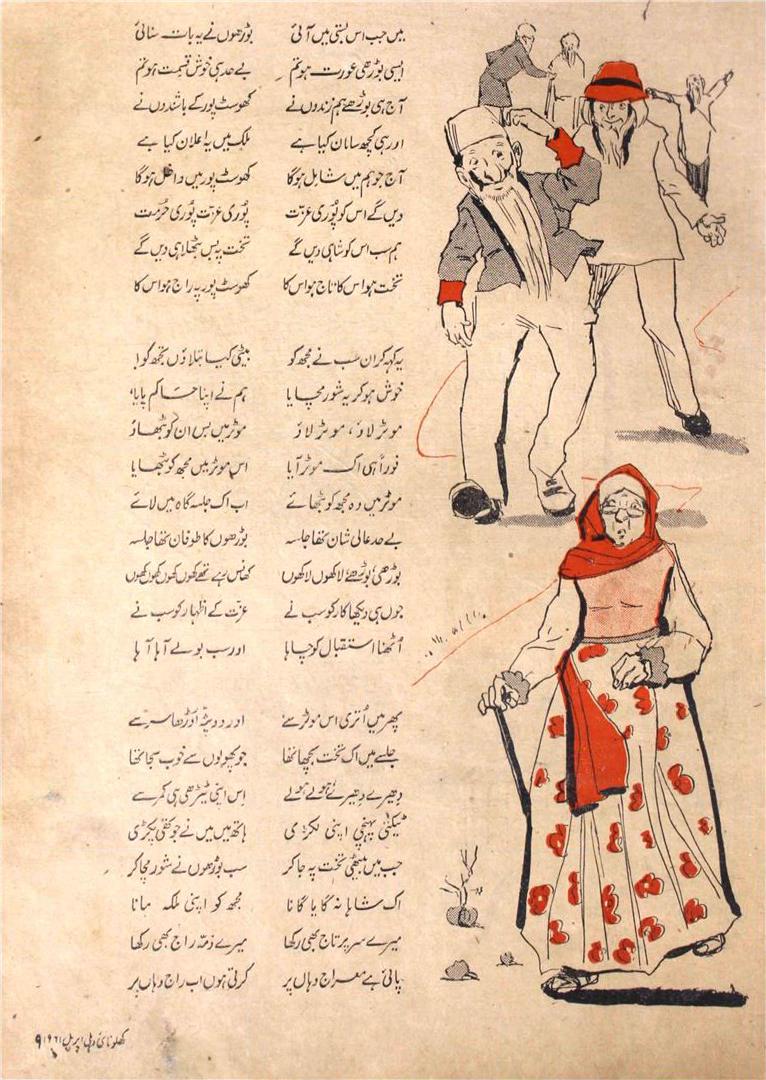 میں جب اس بستی میں آئی بوڑھوں نے یہ بات سنائی
ایسی بوڑھی عورت ہو تم بے حد ہی خوش قسمت ہو تم
آج ہی بوڑھے ہم زندوں نے کھوسٹ پور کے باشندوں نے
اور ہی کچھ سامان کیا ہے ملک میں یہ اعلان کیا ہے
آج جو ہم میں شامل ہوگا کھوسٹ پور میں داخل ہوگا
دیں گے اس کو پوری عزت پوری عزت پوری حرمت
ہم سب اس کو شاہی دیں گے تخت پہ بس بٹھلا ہی دیں گے
تخت ہو اس کا تاج ہو اس کا کھوسٹ پور پہ راج ہو اس کا
یہ کہہ کر ان سب نے مجھ کو بیٹی کیا بتلاؤں تجھ کو!
خوش ہو کر یہ شور مچایا ہم نے اپنا حاکم پایا،
موٹر لاؤ، موٹر لاؤ موٹر میں بس ان کو بٹھاؤ
فوراً ہی اک موٹر آیا اس موٹر میں مجھ کو بٹھایا
موٹر میں وہ مجھ کو بٹھائے اب اک جلسہ گاہ میں لائے
بے حد عالی شان تھا جلسہ بوڑھوں کا طوفان تھا جلسہ
بوڑھی بوڑھے لاکھوں لاکھوں کھانس رہے تھے کھوں کھوں کھوں کھوں
جوں ہی دیکھا کار کو سب نے عزت کے اظہار کو سب نے
اُٹھنا استقبال کو چاہا اور سب بولے آہا آہا
پھر میں اُتری اس موٹر سے اور دوپٹہ اوڑھا سر سے
جلسے میں اک تخت بچھا تھا جو پھولوں سے خوب سجا تھا
دھیرے دھیرے ہولے ہولے اس اپنی ٹیڑھی ہی کمر سے
ٹیکتی پہنچی اپنی لکڑی ہاتھ میں میں نے جو تھی پکڑی
جب میں بیٹھی تخت پہ جا کر سب بوڑھوں نے شور مچا کر
اک شاہانہ گایا گانا مجھ کو اپنی ملکہ مانا
میرے سر پر تاج بھی رکھا میرے ذمہ راج بھی رکھا
پائی ہے معراج وہاں پر کرتی ہوں اب راج وہاں پر
کھلونا نئی دہلی اپریل ۱۹۶۱ ۹